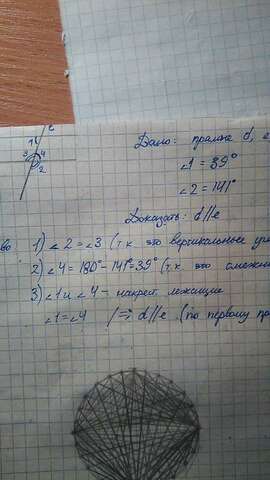 e
1
3 4
2
Дано: прямые d, e
∠1 = 39°
∠2 = 141°
Доказать: d||e
1) ∠2 = ∠3 (т.к это вертикальные
2) ∠4 = 180° - 141° = 39° (т.к это смежн
3) ∠1 и ∠4 - накрест лежащие
∠1 = ∠4 /=> d||e (по первому пр